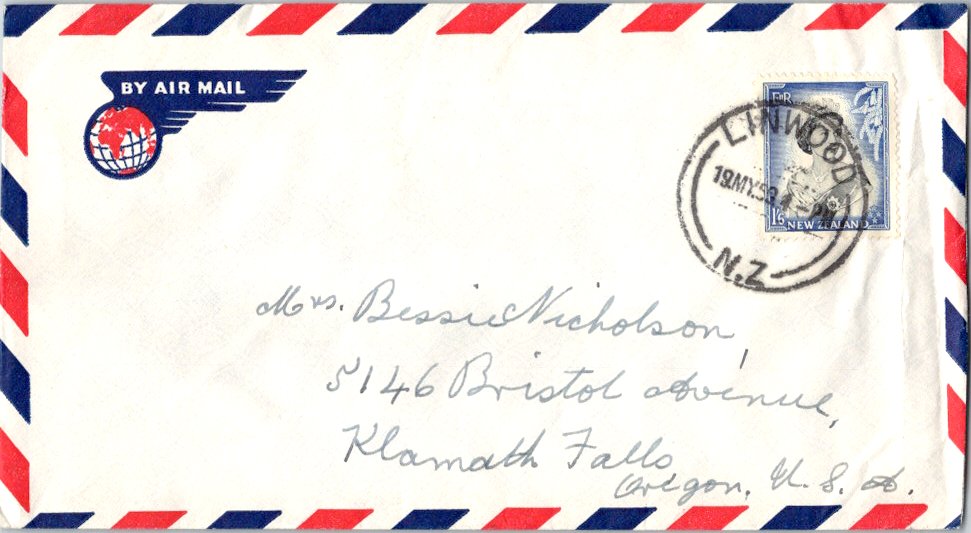 BY AIR MAIL
E R
LINWOOD
4 - PM
N.Z
1'6
NEW ZEALAND
Mrs. Bessie Nicholson,
5146 Bristol Avenue,
Klamath Falls
Oregon. U. S. A.